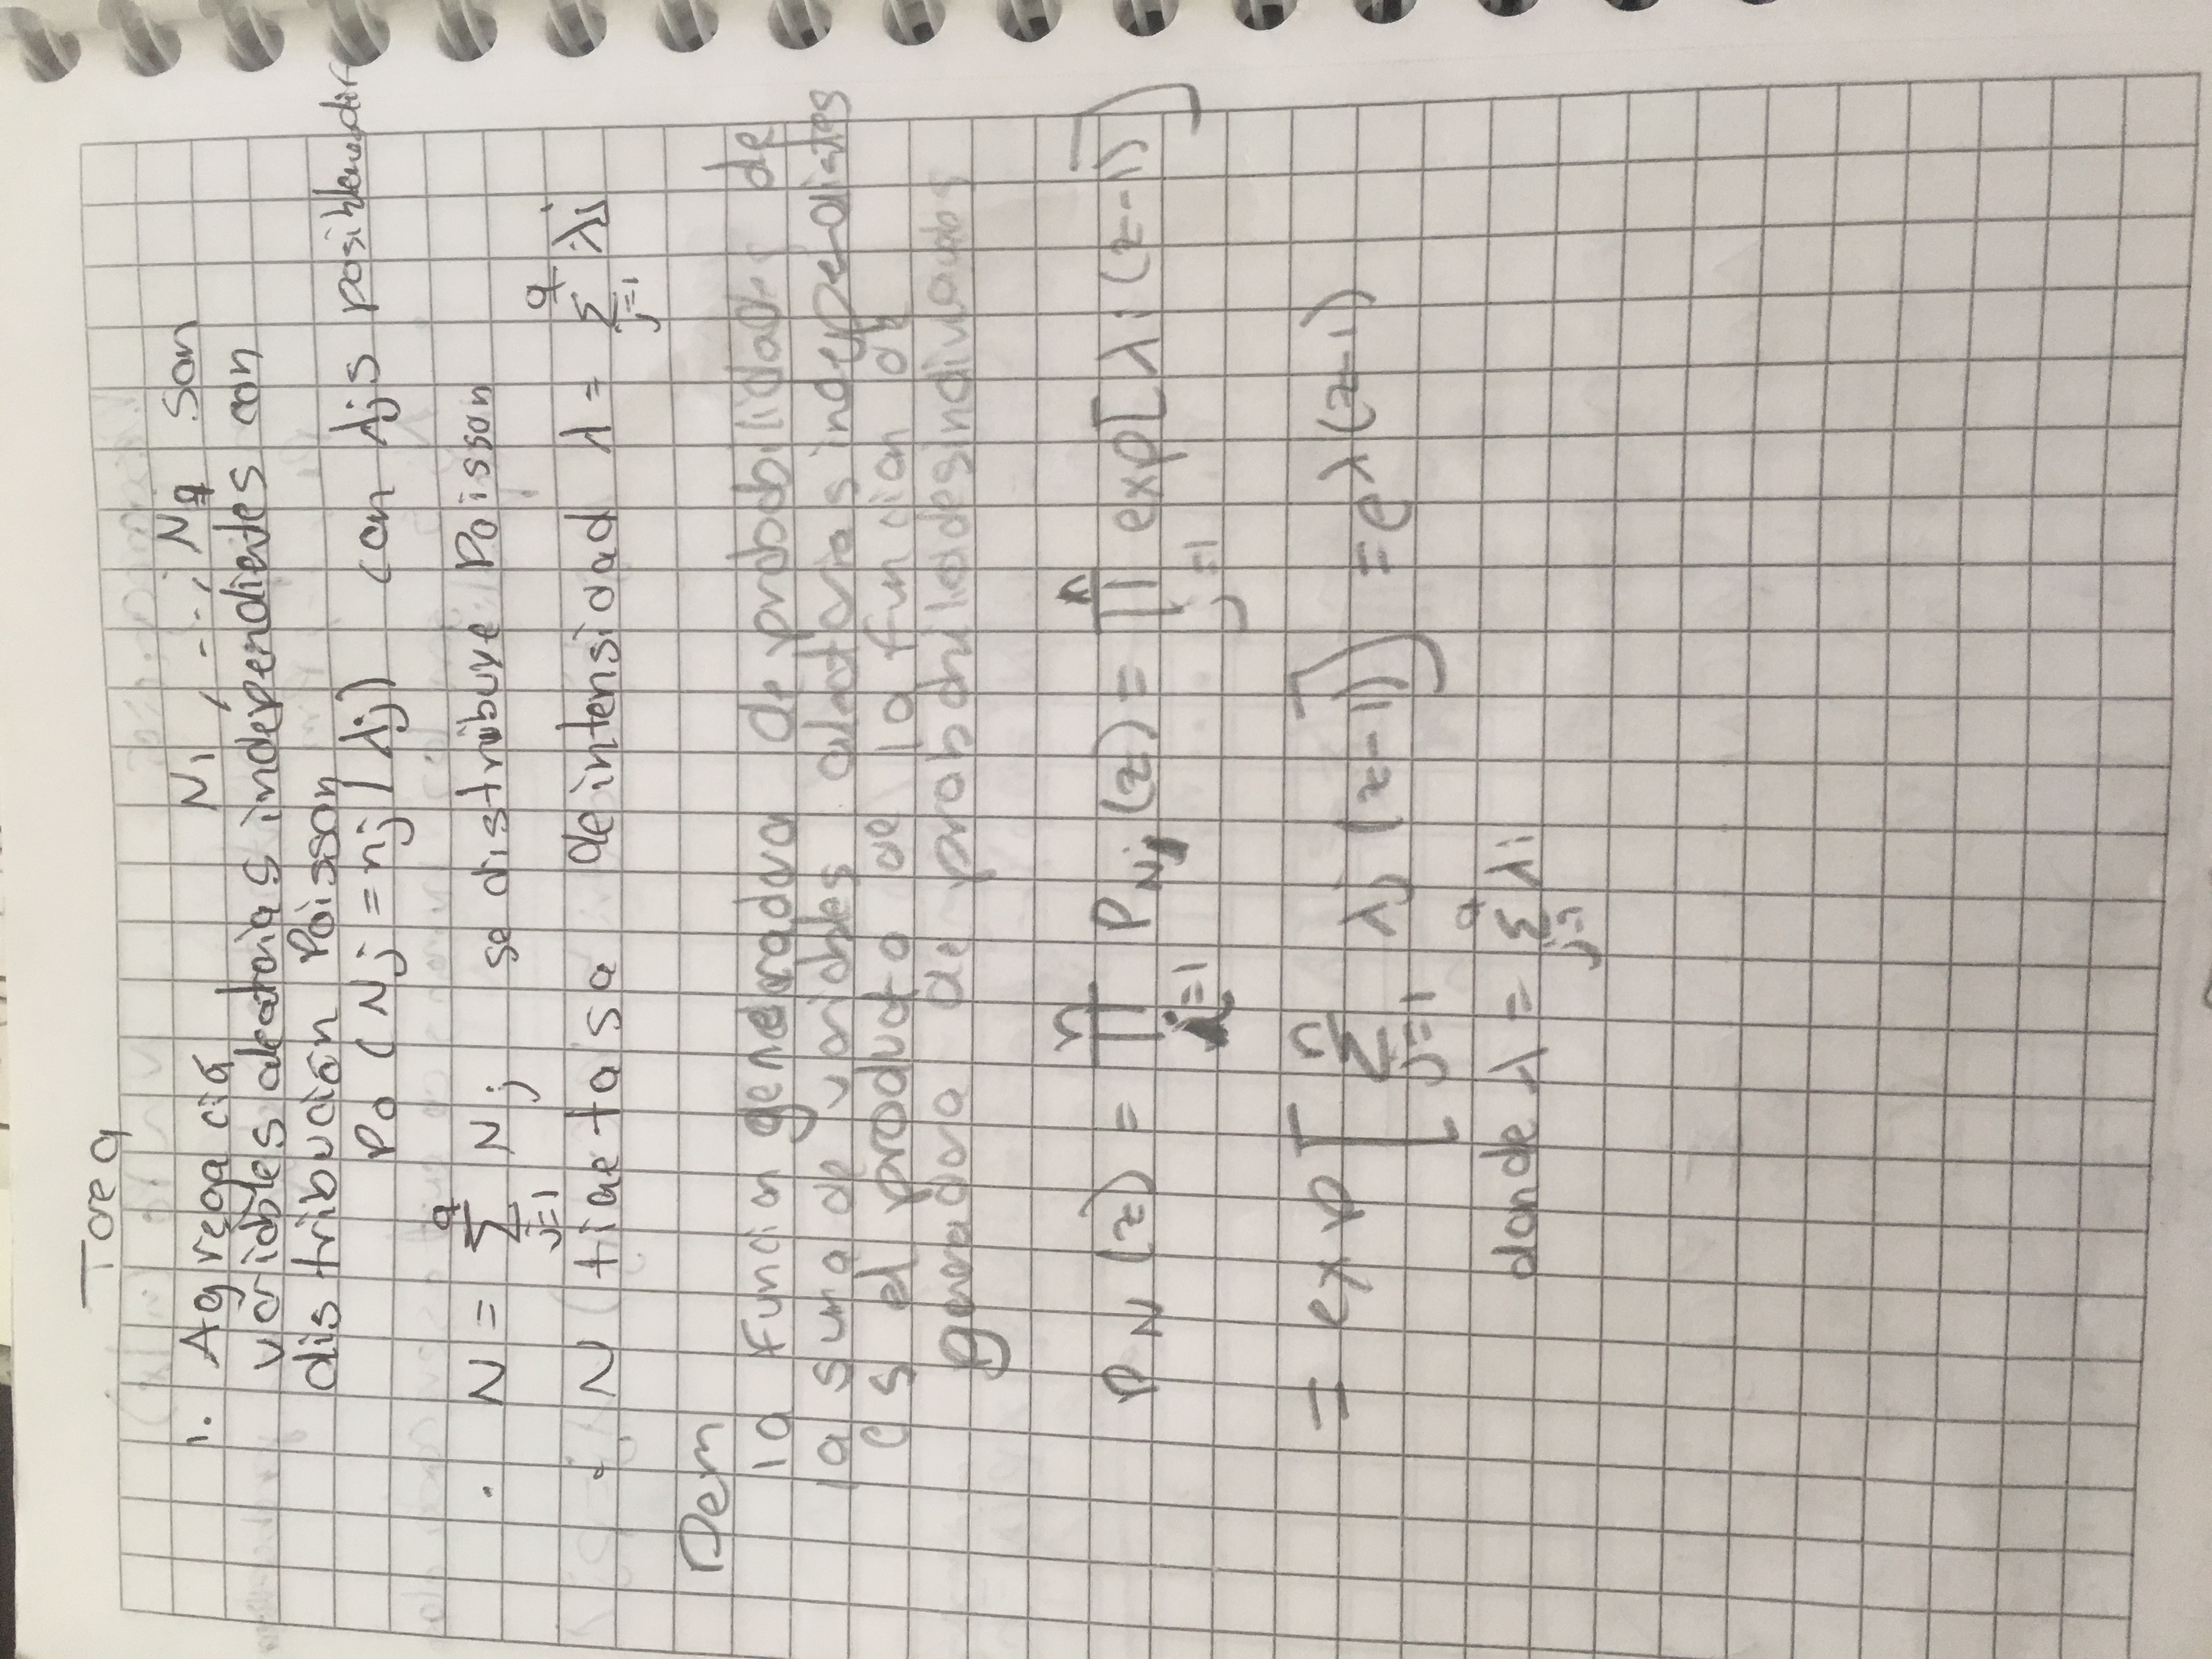 Tarea
1. Agregación N1, ..., Nq son
variables aleatorias independientes con
distribución Poisson
Po (Nj = nj | λj) con λjs posiblemente dif
· N = Σ_{j=1}^{q} Nj se distribuye Poisson
· N tiene tasa de intensidad λ = Σ_{j=1}^{q} λj
Dem
la función generadora de probabilidades de
la suma de variables aleatorias independientes
es el producto de la función de
generadora de probabilidades individuales
P_N (z) = ∏_{j=1}^{n} P_{Nj} (z) = ∏_{j=1}^{n} exp[λj (z-1)]
= exp [Σ_{j=1}^{n} λj (z-1)] = e^{λ(z-1)}
donde λ = Σ_{j=1}^{q} λj